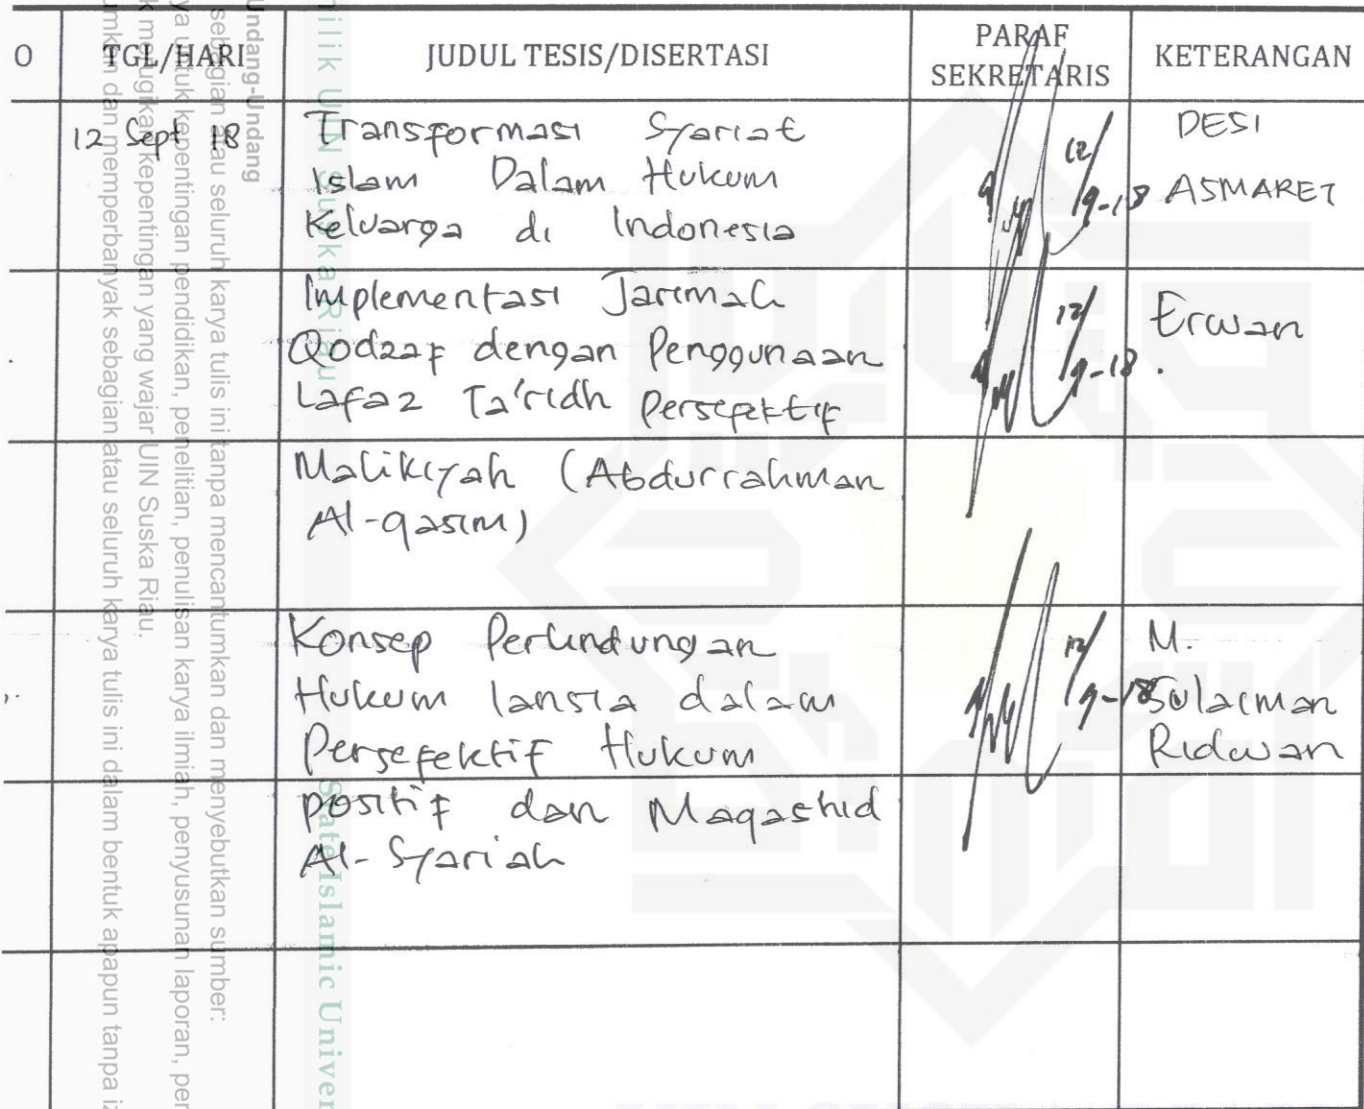 O TGL/HARI JUDUL TESIS/DISERTASI PARAF SEKRETARIS KETERANGAN
12 Sept 18
Transformasi Syariat
Islam Dalam Hukum
Keluarga di Indonesia
12/9-18
DESI
ASMARET
Implementasi Jarimah
Qodzaf dengan Penggunaan
Lafaz Ta'ridh Persepektif
12/9-18.
Erwan
Malikiyah (Abdurrahman
Al-qasim)
Konsep Perlindungan
Hukum lansia dalam
Persefektif Hukum
12/9-18
M.
Sulaiman
Ridwan
positif dan Maqashid
Al-Syariah
milik UIN Suska Riau
State Islamic Univer
Undang-Undang
sebagian atau seluruh karya tulis ini tanpa mencantumkan dan menyebutkan sumber:
ya untuk kepentingan pendidikan, penelitian, penulisan karya ilmiah, penyusunan laporan, per
k merugikan kepentingan yang wajar UIN Suska Riau.
umkan dan memperbanyak sebagian atau seluruh karya tulis ini dalam bentuk apapun tanpa iz